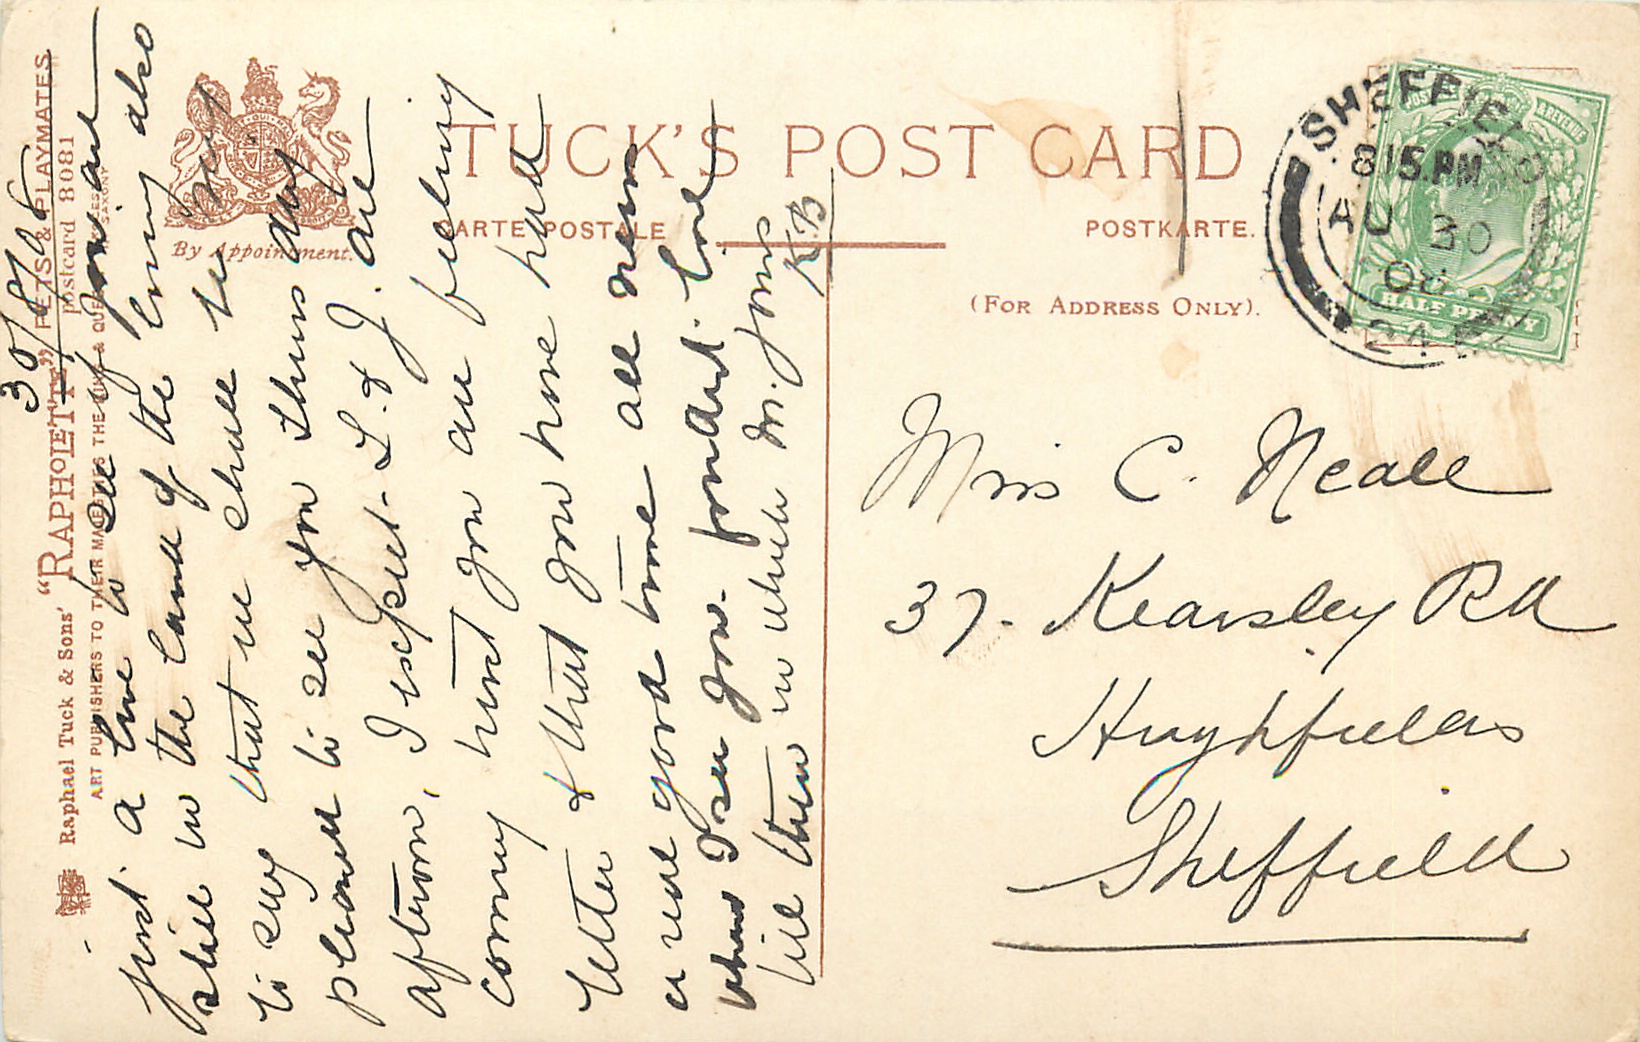 TUCK'S POST CARD
CARTE POSTALE
POSTKARTE.
(FOR ADDRESS ONLY).
By Appointment.
Raphael Tuck & Sons' "RAPHOLETTE" PETS & PLAYMATES
postcard 8081
ART PUBLISHERS TO THEIR MAJESTIES THE KING & QUEEN
SAXONY
SHEFFIELD
8 15.PM
AU 30
06
24
POSTAGE & REVENUE
HALF PENNY
30/8/06
Just a line to see if you are
still in the land of the living also
to say that we shall be very
pleased to see you Thursday
afternoon, I expect L. & J. are
coming trust you are feeling
better & that you have had
a real good time all news
when I see you. forward. love
till then in which M. joins
K.B
Miss C. Neall
37. Kearsley Rd
Highfields
Sheffield